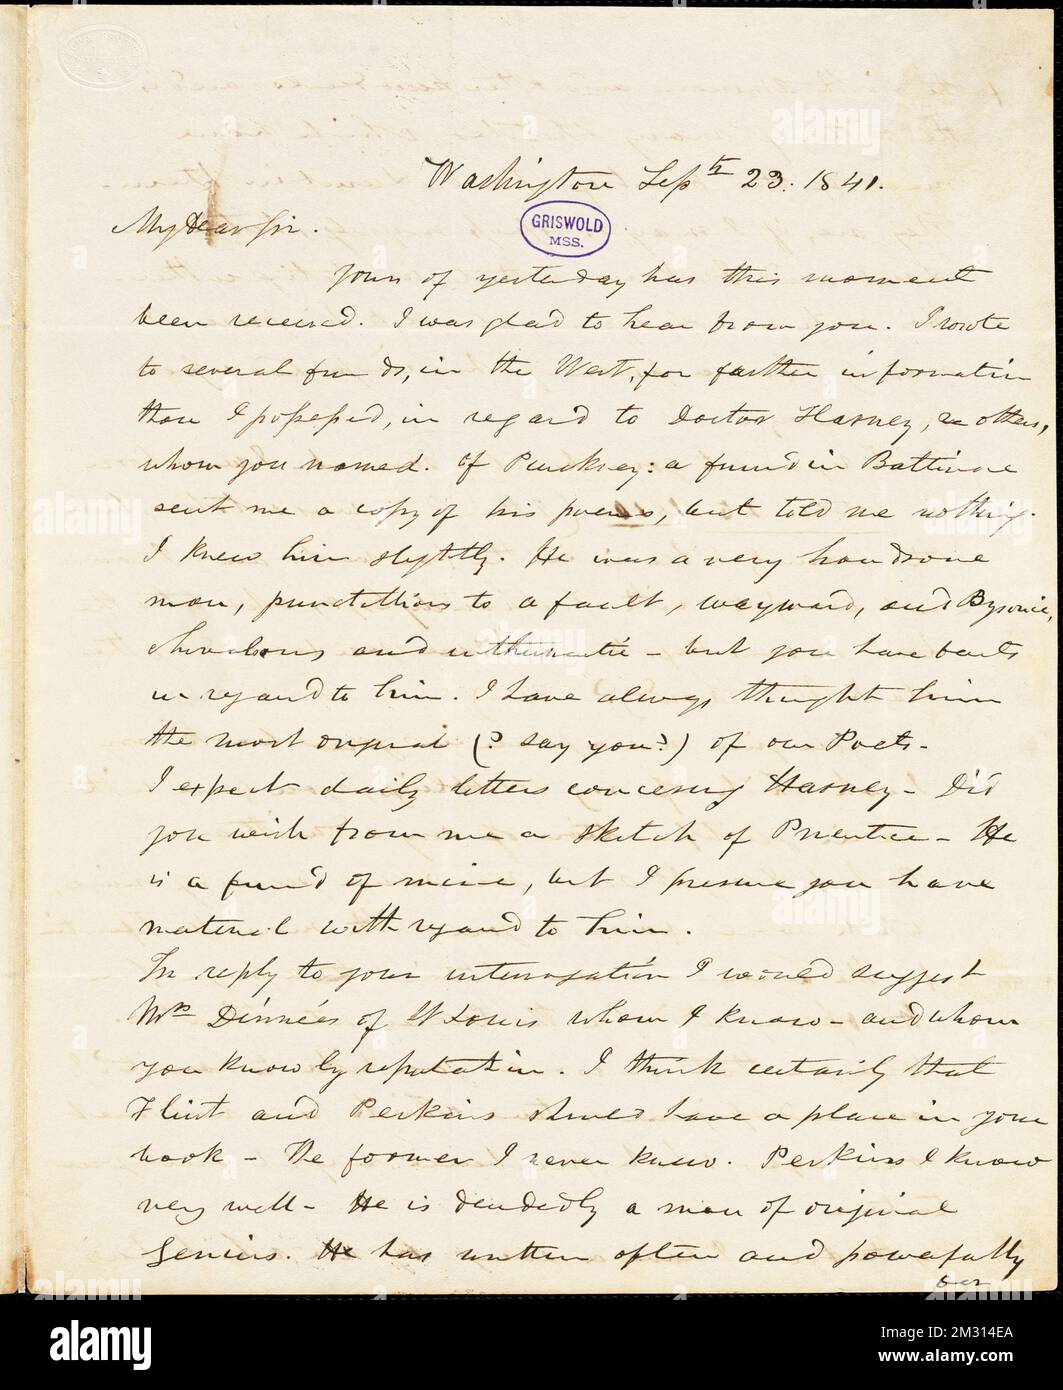 Washington Septh 23. 1841.
My Dear Sir.
GRISWOLD
MSS.
Yours of yesterday has this moment
been received. I was glad to hear from you. I wrote
to several friends, in the West, for farther information
than I possessed, in regard to Doctor Harney, & others,
whom you named. Of Pinckney: a friend in Baltimore
sent me a copy of his poems, but told me nothing.
I knew him slightly. He was a very handsome
man, punctilious to a fault, wayward, and Byronic,
chivalrous and enthusiastic – but you have facts
in regard to him. I have always thought him
the most original (? say you?) of our Poets –
I expect daily letters concerning Harney – Did
you wish from me a sketch of Prentice – He
is a friend of mine, but I presume you have
material with regard to him.
In reply to your interrogation I would suggest
Mrs Dinnies of St Louis whom I know – and whom
you know by reputation. I think certainly that
Flint and Perkins should have a place in your
book – The former I never knew. Perkins I know
very well – He is decidedly a man of original
Genius. He has written often and powerfully
alamy
Image ID: 2M314EA
www.alamy.com